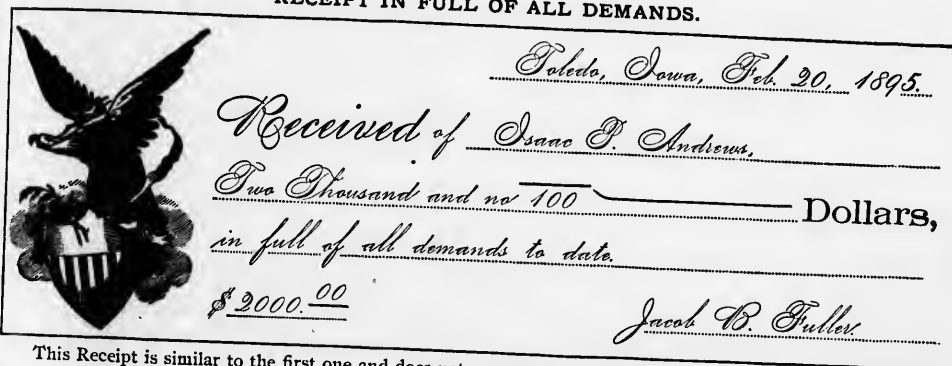 RECEIPT IN FULL OF ALL DEMANDS.
Toledo, Iowa, Feb. 20, 1895.
Received of Isaac P. Andrews,
Two Thousand and no/100 Dollars,
in full of all demands to date.
$2000.00
Jacob B. Fuller.
This Receipt is similar to the first one and does not